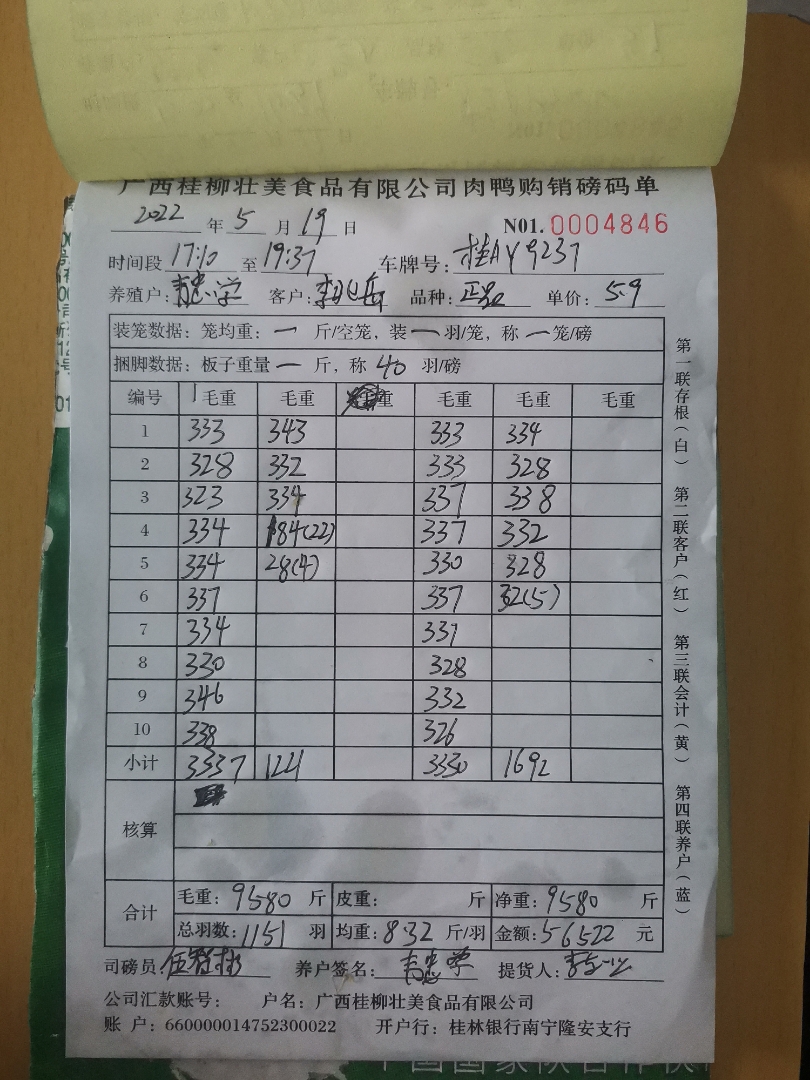 广西桂柳壮美食品有限公司肉鸭购销磅码单
2022 年 5 月 19 日 N01. 0004846
时间段 17:10 至 19:37 车牌号: 桂AY9237
养殖户: 客户: 李 岳 品种: 正品 单价: 5.9
装笼数据: 笼均重: 一 斤/空笼, 装 一 羽/笼, 称 一 笼/磅
捆脚数据: 板子重量 一 斤, 称 40 羽/磅
编号 毛重 毛重 重 毛重 毛重 毛重
1 333 343 333 334
2 328 332 333 328
3 323 334 337 338
4 334 184(22) 337 332
5 334 28(4) 330 328
6 337 337 32(5)
7 334 337
8 330 328
9 346 332
10 338 326
小计 3337 1221 3330 1692
核算
合计
毛重: 9580 斤 皮重: 斤 净重: 9580 斤
总羽数: 1151 羽 均重: 8.32 斤/羽 金额: 56522 元
司磅员: 养户签名: 提货人:
公司汇款账号: 户名: 广西桂柳壮美食品有限公司
账 户: 660000014752300022 开户行: 桂林银行南宁隆安支行
第一联存根(白) 第二联客户(红) 第三联会计(黄) 第四联养户(蓝)